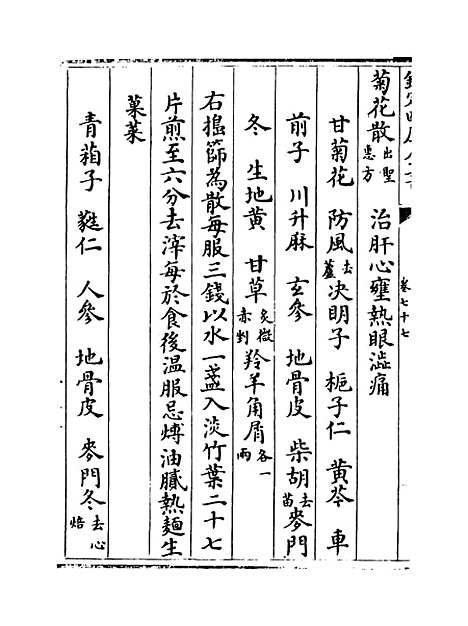 欽定四庫全書
卷七十七
菊花散出聖惠方 治肝心壅熱眼澁痛
甘菊花 防風去蘆 決明子 梔子仁 黄芩 車
前子 川升麻 玄參 地骨皮 柴胡去苗 麥門
冬 生地黄 甘草炙微赤剉 羚羊角屑各一兩
右搗篩為散每服三錢以水一盞入淡竹葉二十七
片煎至六分去滓每於食後温服忌煿油膩熱麵生
菓菜
青葙子 蕤仁 人參 地骨皮 麥門冬去心焙